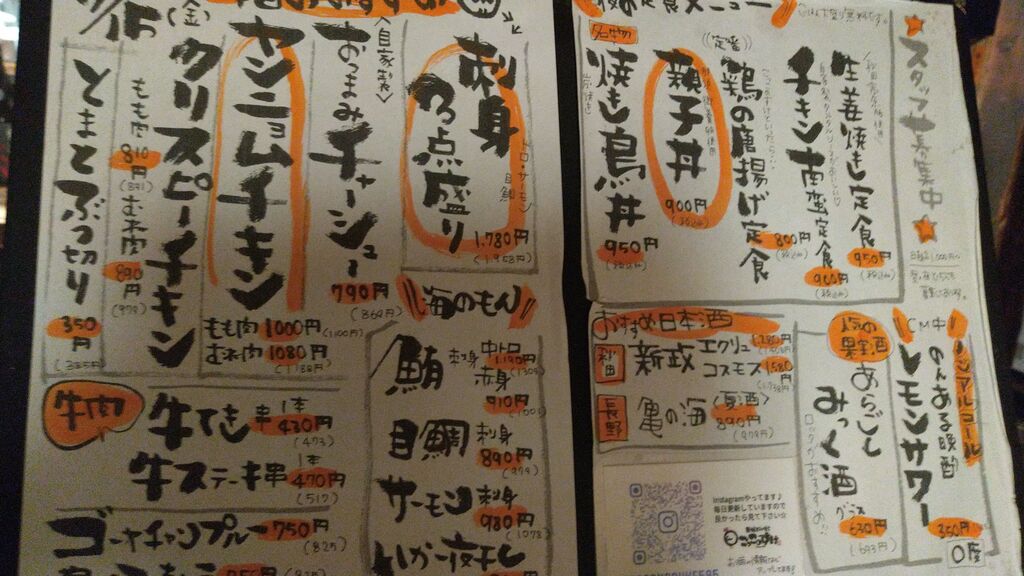 7/15
(金)
刺身
3点盛り
トロ・サーモン
目鯛
1.780円
(1.958円)
〈自家製〉
おつまみチャーシュー
790円
(869円)
ヤンニョムチキン
もも肉 1000円
(1100円)
むね肉 1080円
(1188円)
クリスピーチキン
もも肉 810円
(891)
むね肉 890円
(979)
とまとぶつ切り
350円
(385円)
海のもん
鮪 刺身 中トロ
1.190円
(1309)
赤身
910円
(1001)
目鯛 刺身
890円
(979)
サーモン 刺身
980円
(1078)
いか一夜干し
牛肉
牛てき串 1本
430円
(473)
牛ステーキ串 1本
470円
(517)
ゴーヤチャンプルー 750円
(825)
夜の定食メニュー
生姜焼き定食
950円
(税込み)
チキン南蛮定食
900円
(税込み)
((定番))
鶏の唐揚げ定食
800円
(税込み)
親子丼
900円
(税込み)
名物
焼き鳥丼
950円
(税込み)
★スタッフ募集中★
おすすめ日本酒
秋田
新政 エクリュ
コスモス
1580円
長野
亀の海 〈夏酒〉
890円
(979円)
大人の果実酒
あらごしみっく酒
ロックがおすすめ!!
グラス
630円
(693円)
ノンアルコール
CM中
のんある晩酌
レモンサワー
350円
0度
Instagramやってます♪
毎日更新していますので
良かったら見て下さい☆